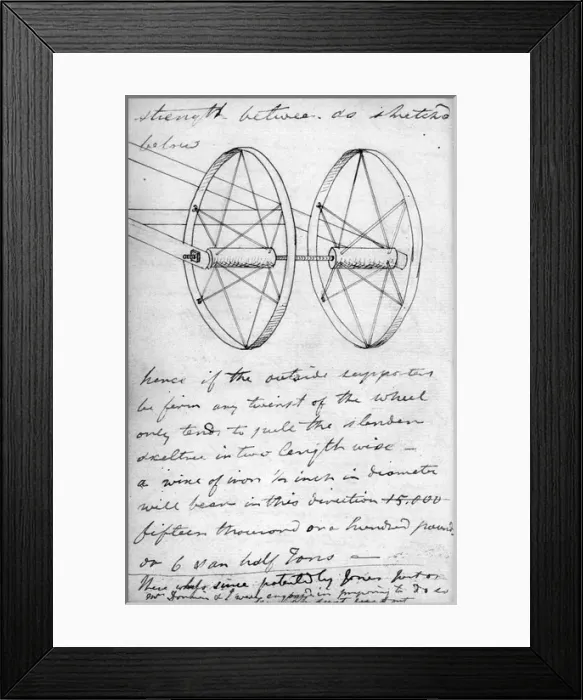 strength between. as sketchd
below
hence if the outside supporters
be firm any twist of the wheel
only tends to pull the slender
axeltree in two length wise —
a wire of iron ½ inch in diameter
will bear in this direction 15,000
fifteen thousand or a hundred pounds
or 6 & an half Tons —
These wheels since patented by Jones just as
Mr & I were engaged in preparing to do so